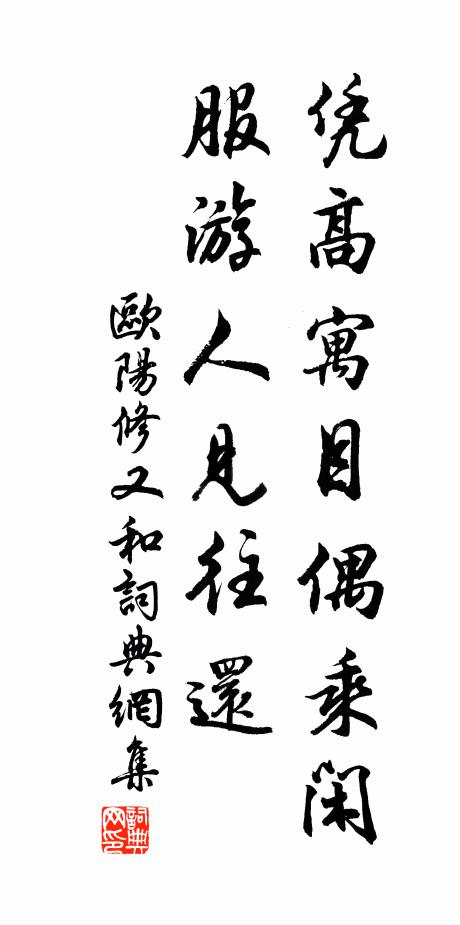 凭高寓目偶乘闲
服游人见往还
歐陽修又和詞典網集
詞典
网印